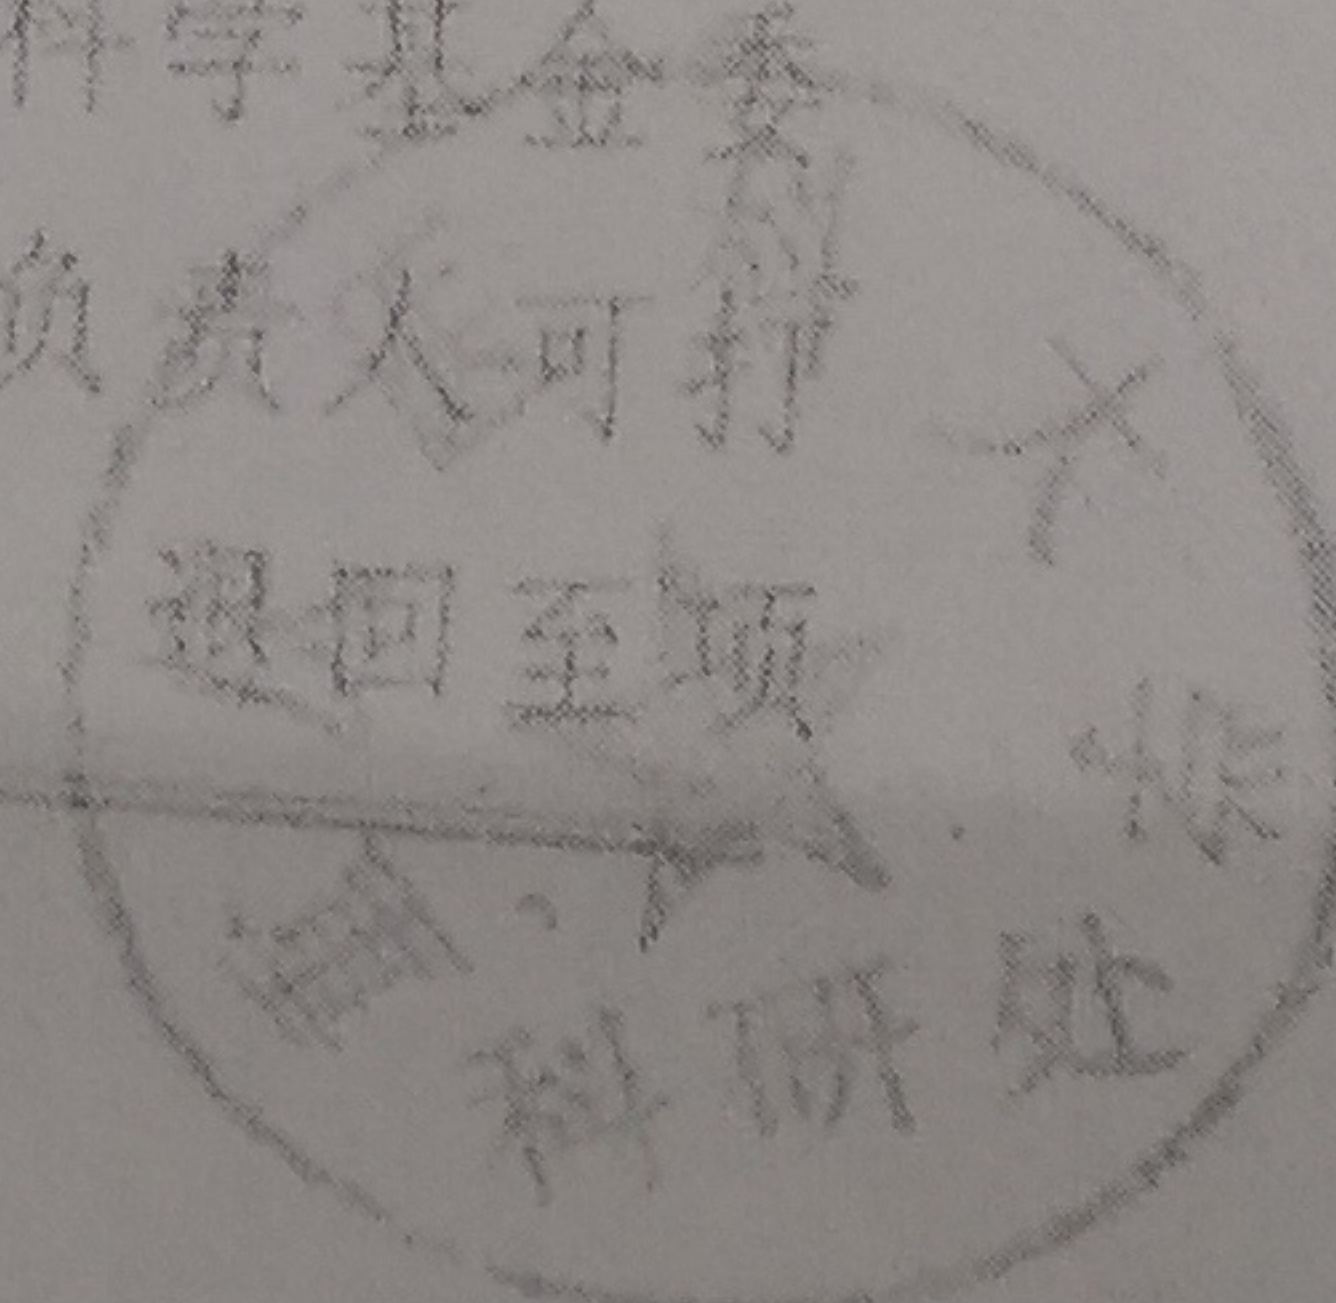 科学基金委
负责人可打
退回至项
大学
科研处